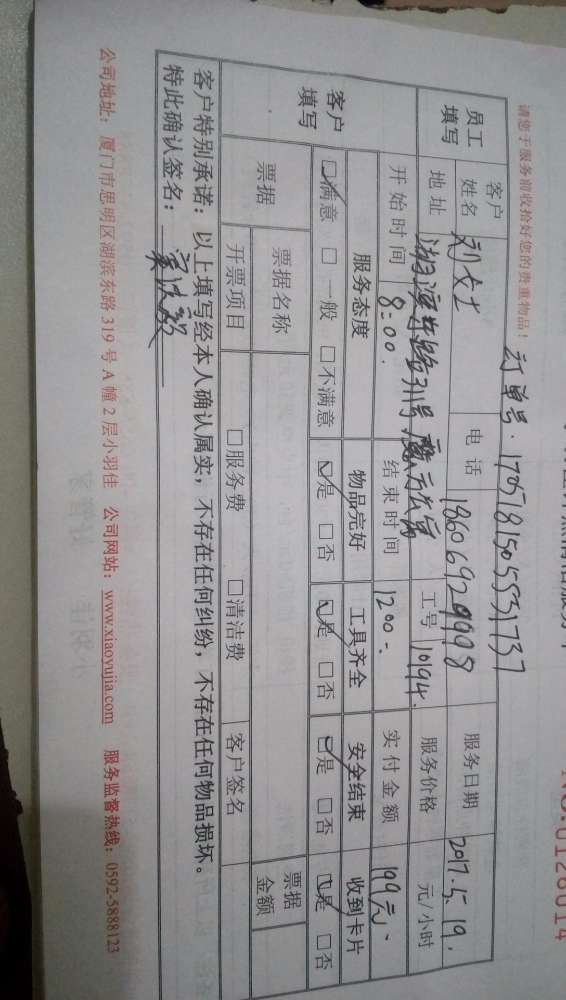 NO.0128014
订单号:17051815055531737
请您于服务前收拾好您的贵重物品!
员工填写 客户姓名 刘女士 电话 服务日期 2017.5.19.
地址 工号 10194. 服务价格 元/小时
开始时间 8:00. 结束时间 1200 实付金额 199元
客户填写 服务态度 物品完好 工具齐全 安全结束 收到卡片
☑满意 □一般 □不满意 ☑是 □否 ☑是 □否 ☑是 □否 ☑是 □否
票据 票据名称 票据金额
开票项目 □服务费 □清洁费 客户签名
客户特别承诺:以上填写经本人确认属实,不存在任何纠纷,不存在任何物品损坏。
特此确认签名:
公司地址:厦门市思明区湖滨东路319号A幢2层小羽佳 公司网站:www.xiaoyujia.com 服务监督热线:0592-5888123